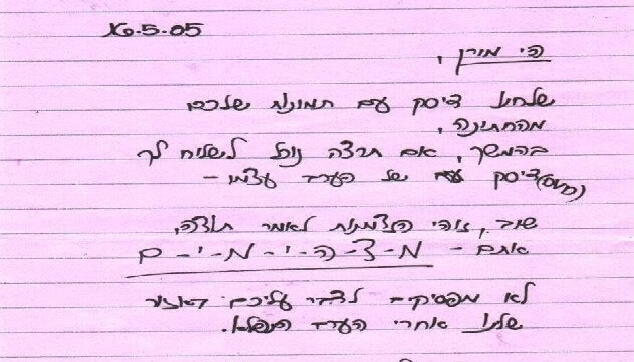 16.5.05
הי מורן,
שלחנו דיסק עם תמונות שלכם
מהחתונה,
בהמשך, אם תרצה נוכל לשלוח לך
דיסק (סרט) עם של הערב עצמו -
שוב, זוהי הזדמנות לאמר תודה,
אתם - מ-ד-ה-י-מ-י-ם
לא מפסיקים לדבר עליכם באזור
שלנו אחרי הערב המופלא.